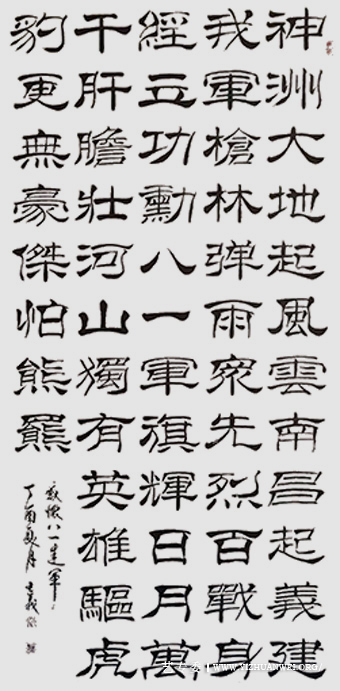 神洲大地起風雲南昌起義建
我軍槍林弹雨衆先烈百戰身
經立功勳八一軍旗輝日月萬
千肝膽壯河山獨有英雄驅虎
豹更無豪傑怕熊羆
感懷八一建軍
丁酉秋月
WWW.YIZHUANWEI.ORG